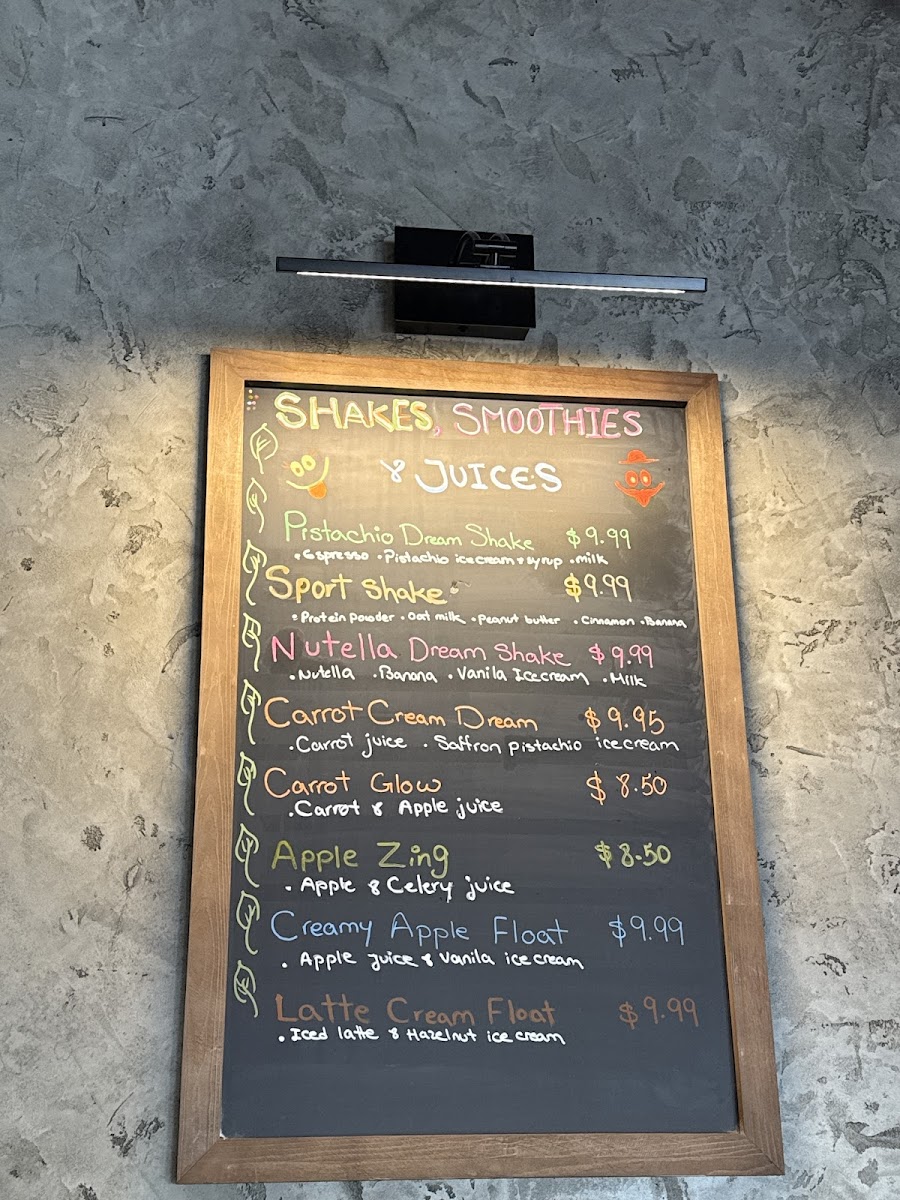 SHAKES, SMOOTHIES
& JUICES
Pistachio Dream Shake $9.99
• Espresso • Pistachio ice cream + syrup • milk
Sport Shake $9.99
• Protein powder • Oat milk • Peanut butter • Cinnamon • Banana
Nutella Dream Shake $9.99
• Nutella • Banana • Vanila Icecream • Milk
Carrot Cream Dream $9.95
• Carrot juice • Saffron pistachio icecream
Carrot Glow $8.50
• Carrot & Apple juice
Apple Zing $8.50
• Apple & Celery juice
Creamy Apple Float $9.99
• Apple juice & Vanila ice cream
Latte Cream Float $9.99
• Iced latte & Hazelnut ice cream